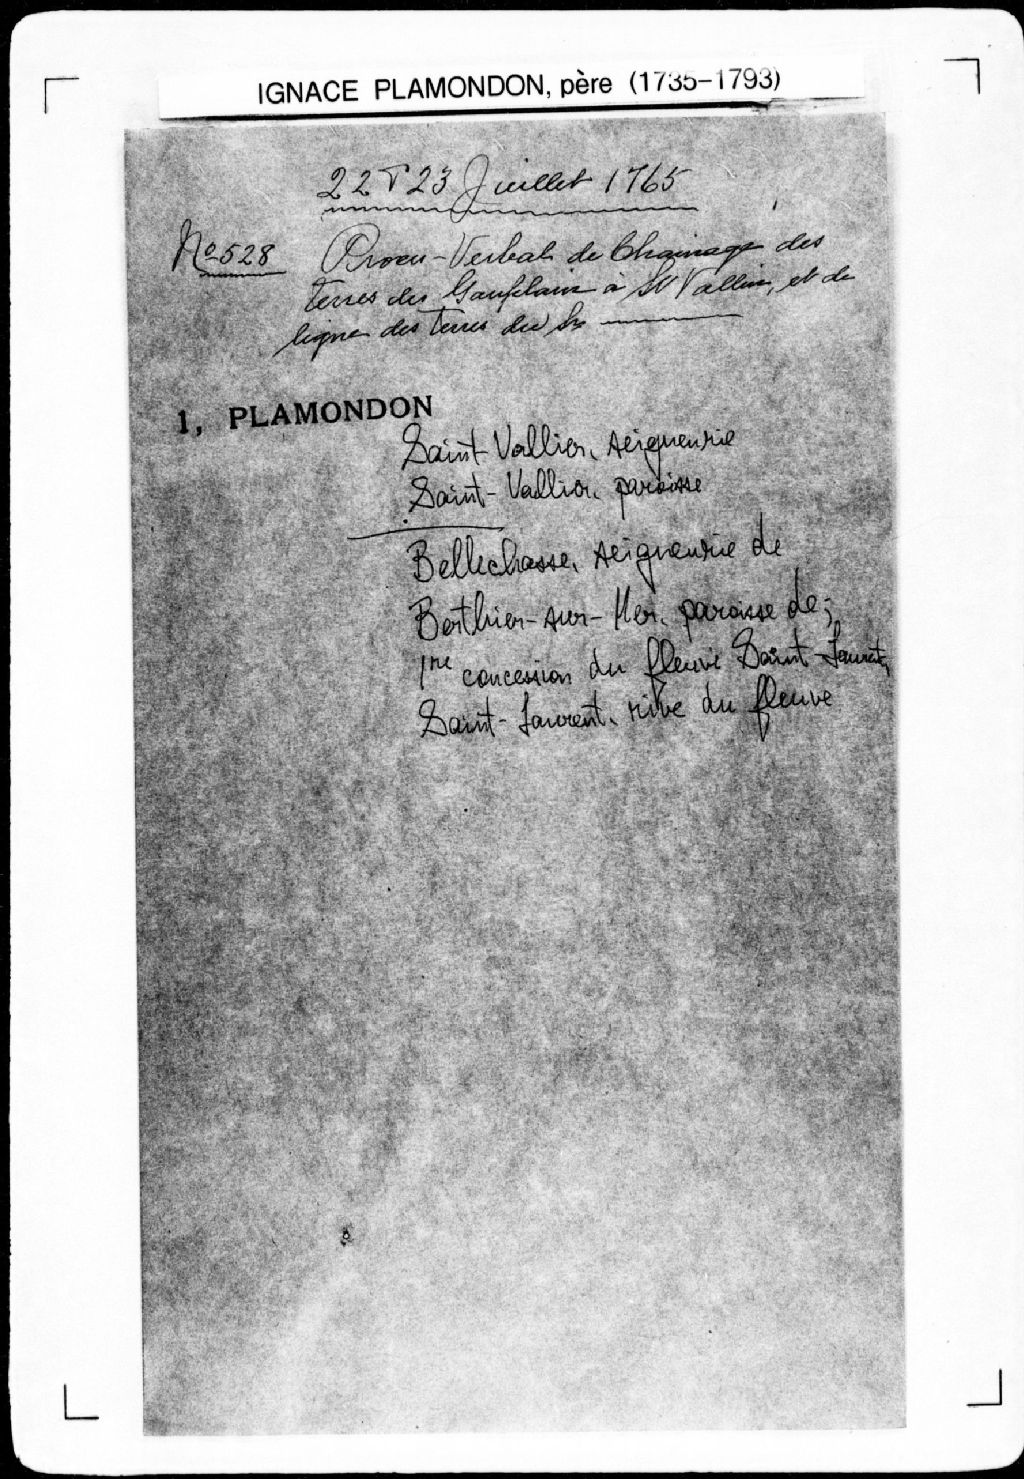 IGNACE PLAMONDON, père (1735-1793)
22 & 23 Juillet 1765
No 528 Procès-Verbal de Chainage des
terres des à St Vallier, et de
ligne des terres du Sr
1, PLAMONDON
Saint-Vallier, seigneurie
Saint-Vallier, paroisse
Bellechasse, seigneurie de
Berthier-sur-Mer, paroisse de;
1re concession du fleuve Saint-Laurent,
Saint-Laurent, rive du fleuve